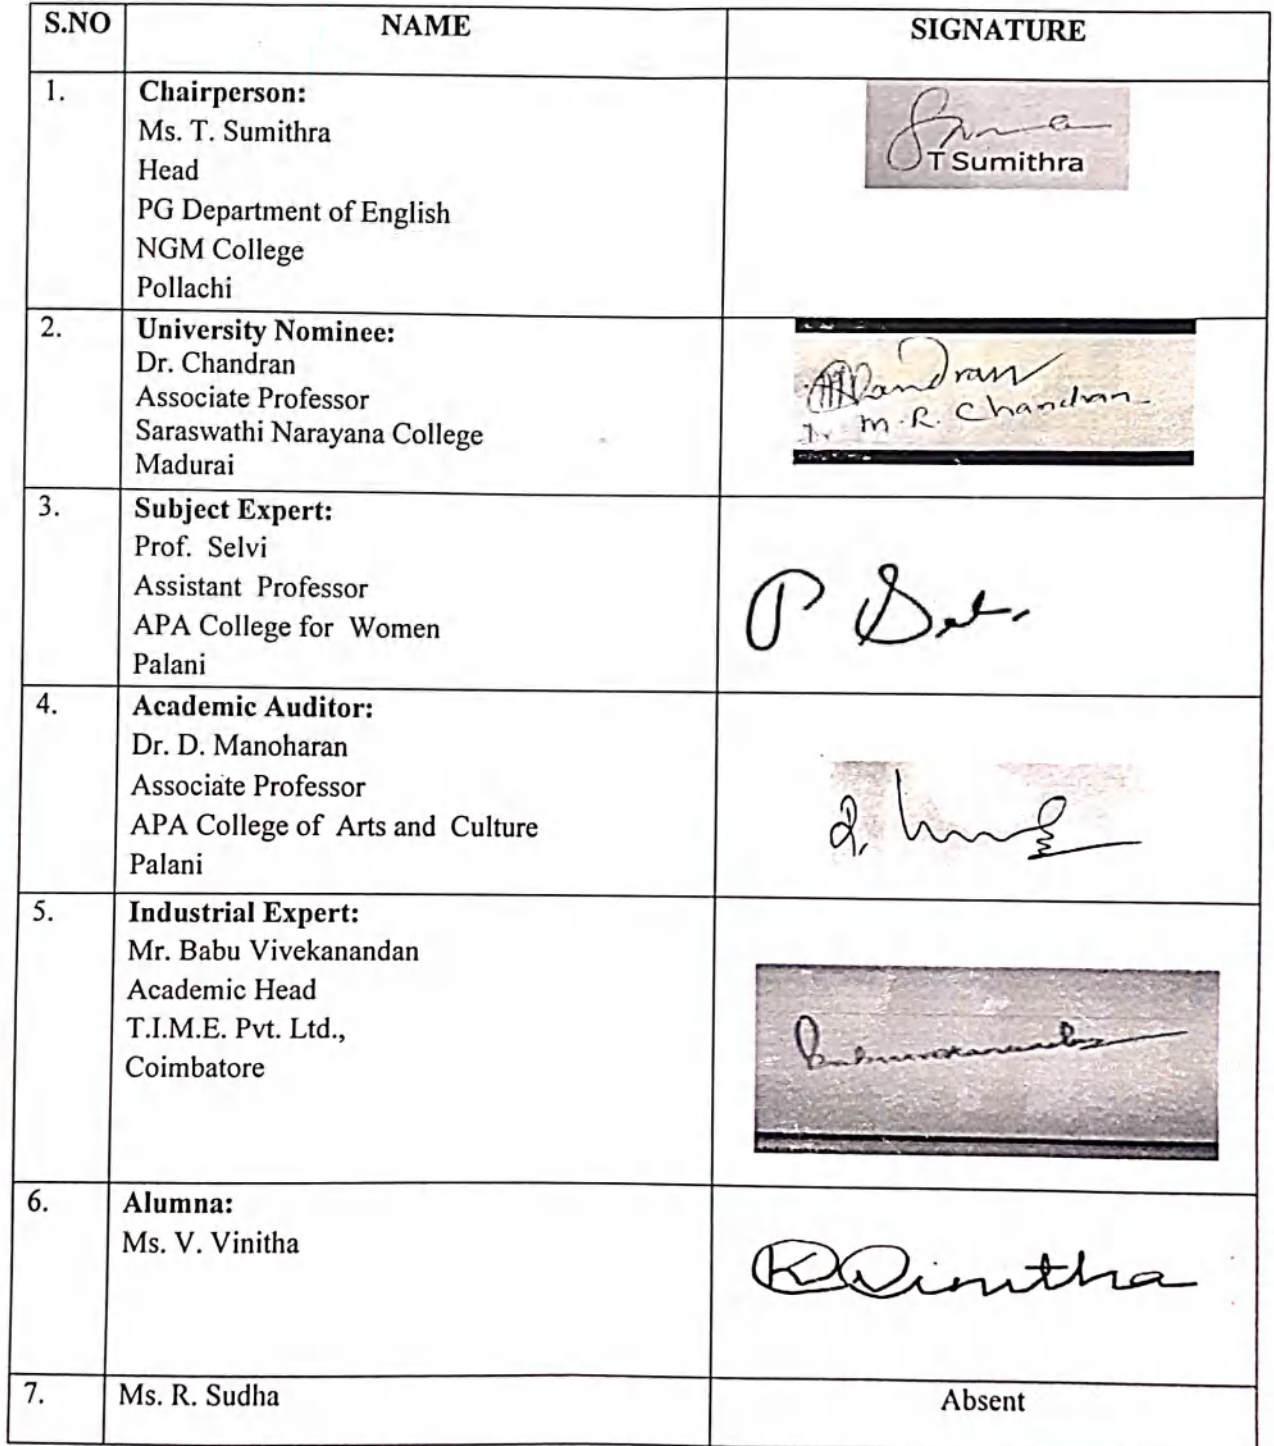 S.NO NAME SIGNATURE
1. Chairperson:
Ms. T. Sumithra
Head
PG Department of English
NGM College
Pollachi
T Sumithra
2. University Nominee:
Dr. Chandran
Associate Professor
Saraswathi Narayana College
Madurai
M.R. Chandran
3. Subject Expert:
Prof. Selvi
Assistant Professor
APA College for Women
Palani
4. Academic Auditor:
Dr. D. Manoharan
Associate Professor
APA College of Arts and Culture
Palani
5. Industrial Expert:
Mr. Babu Vivekanandan
Academic Head
T.I.M.E. Pvt. Ltd.,
Coimbatore
6. Alumna:
Ms. V. Vinitha
7. Ms. R. Sudha Absent